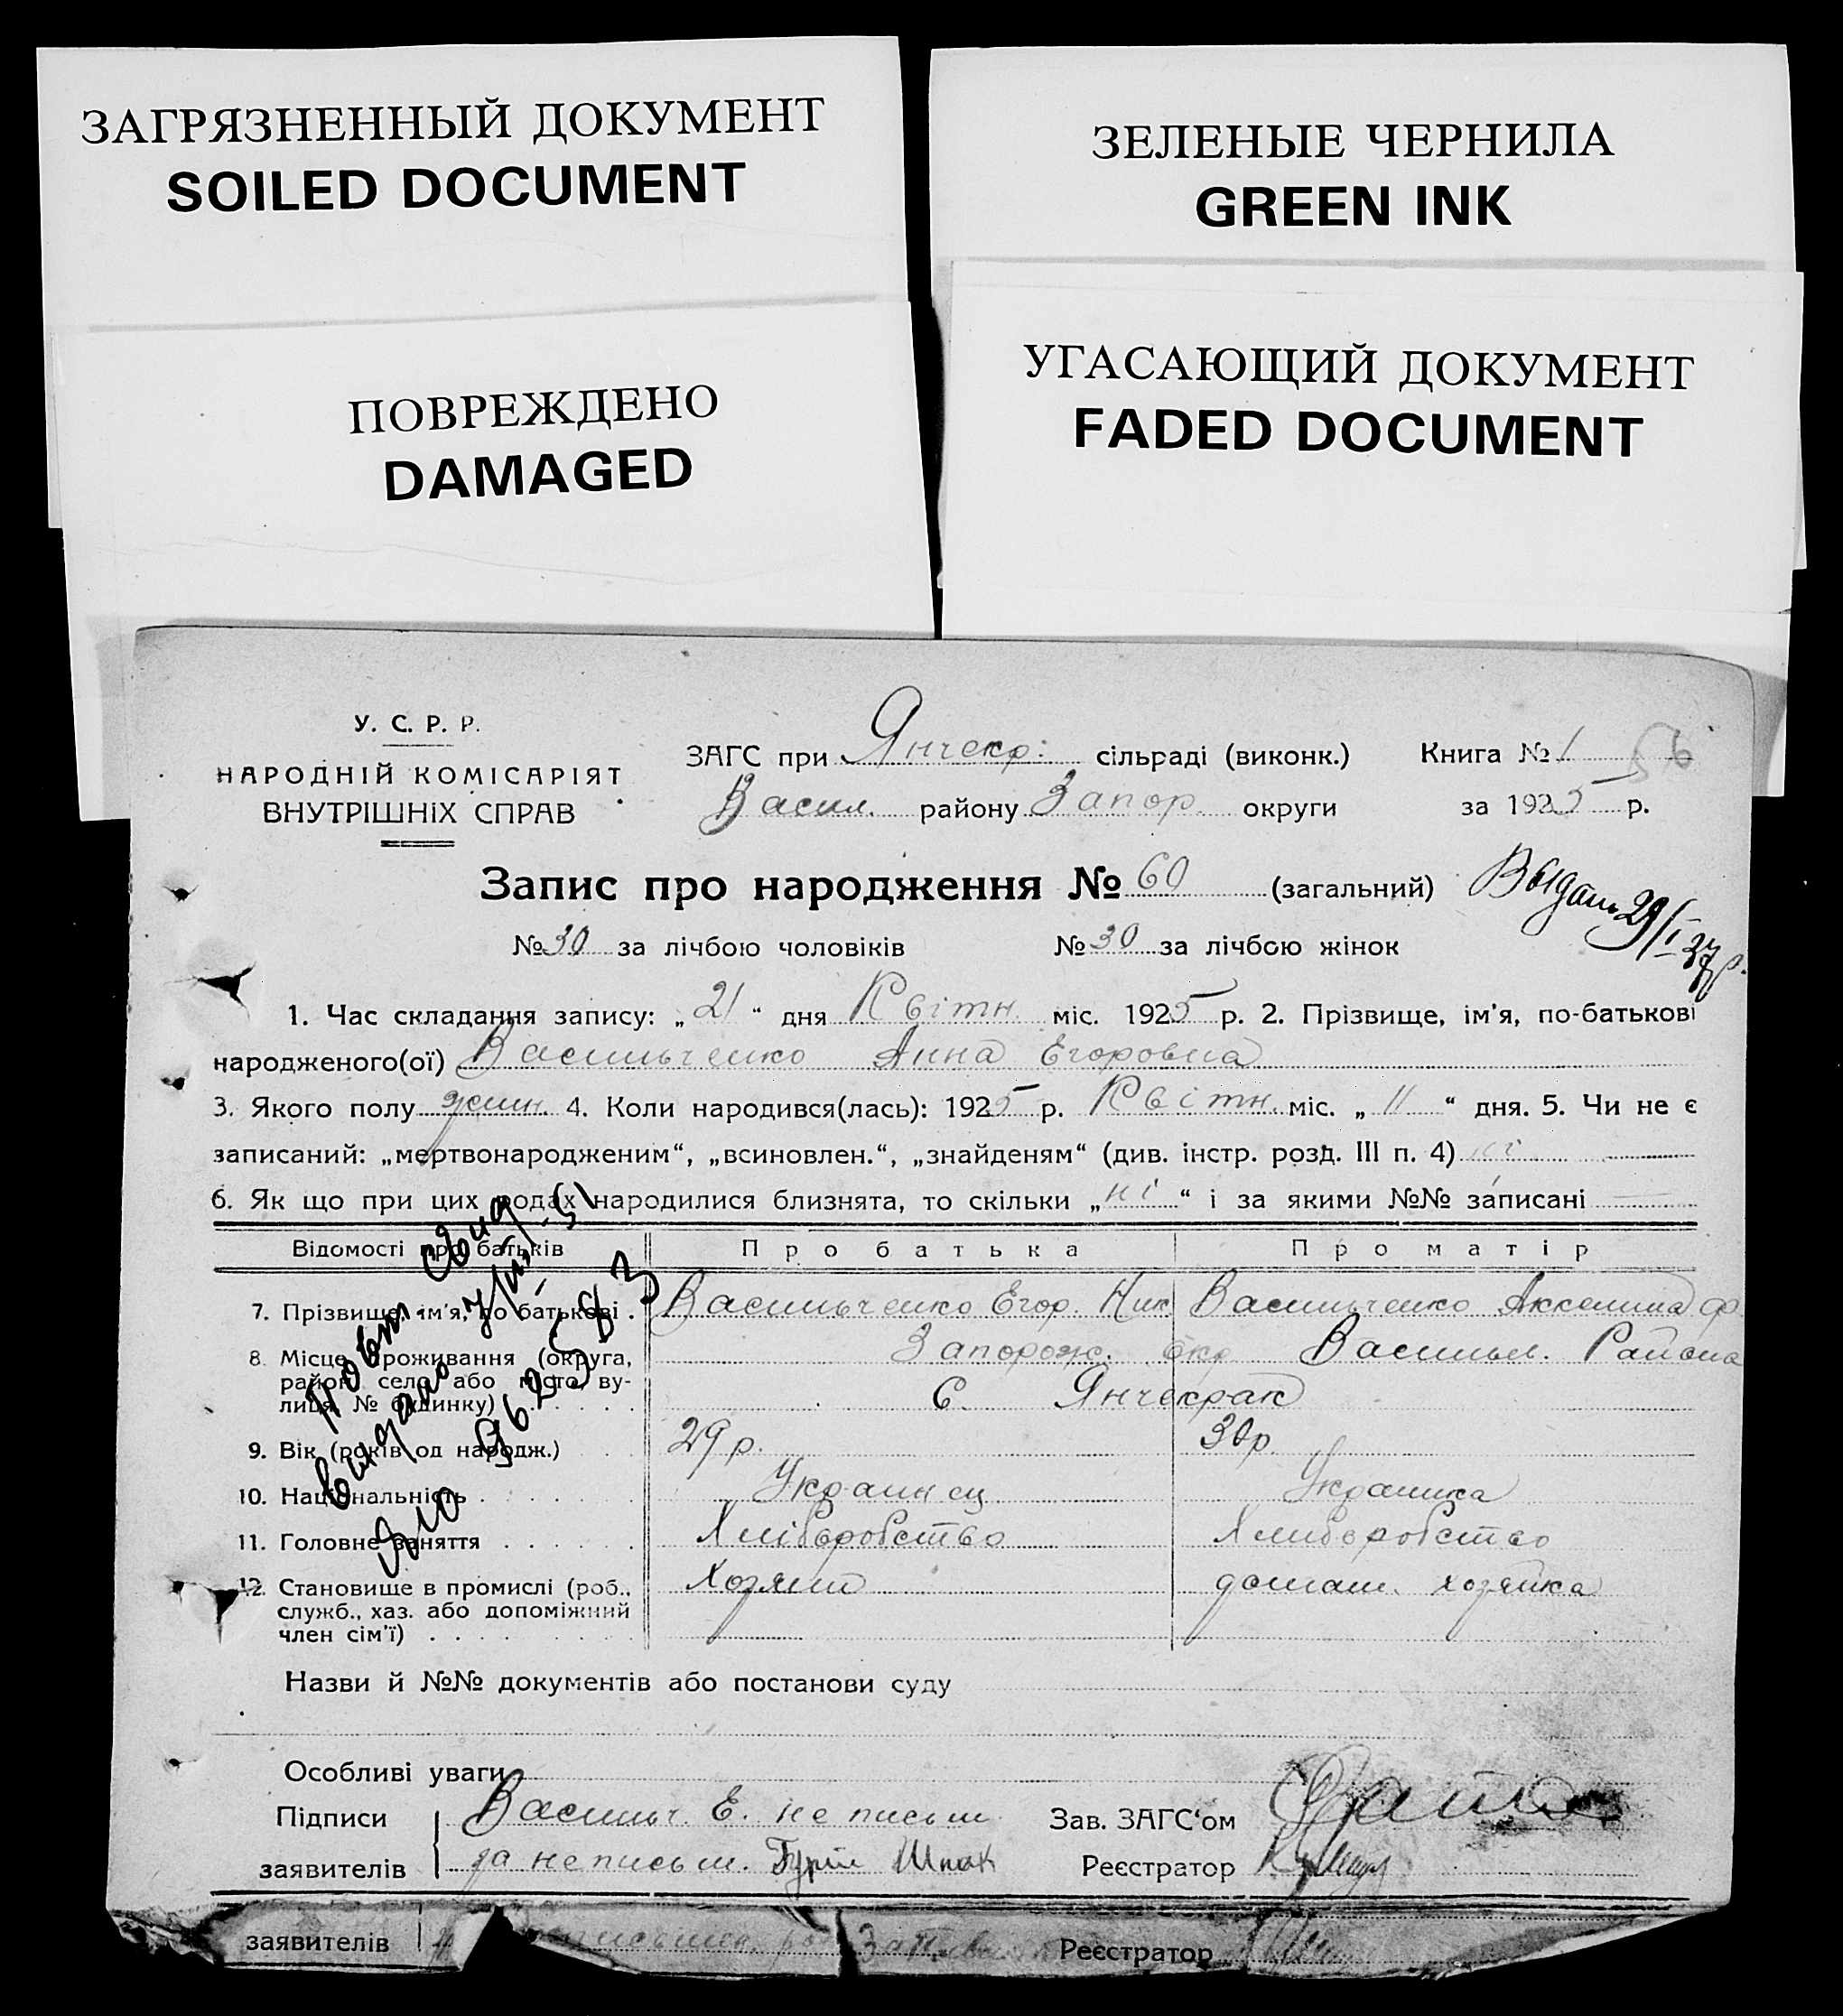 ЗАГРЯЗНЕННЫЙ ДОКУМЕНТ
SOILED DOCUMENT
ЗЕЛЕНЫЕ ЧЕРНИЛА
GREEN INK
ПОВРЕЖДЕНО
DAMAGED
УГАСАЮЩИЙ ДОКУМЕНТ
FADED DOCUMENT
У. С. Р. Р.
НАРОДНІЙ КОМІСАРІЯТ
ВНУТРІШНІХ СПРАВ
ЗАГС при Янчекр: сільраді (виконк.) Книга № 1 56
Васил. району Запор. округи за 1925 р.
Запис про народження № 60 (загальний)
Выдан 29/I-37 р.
№ 30 за лічбою чоловіків № 30 за лічбою жінок
1. Час складання запису: „ 21 “ дня Квітн. міс. 1925 р. 2. Прізвище, ім'я, по-батькові
народженого(ої) Васильченко Анна Егоровна
3. Якого полу жин. 4. Коли народився(лась): 1925 р. Квітн. міс. „ 11 “ дня. 5. Чи не є
записаний: „мертвонародженим“, „всиновлен.“, „знайденям“ (див. інстр. розд. III п. 4) ні
6. Як що при цих родах народилися близнята, то скільки „ ні “ і за якими №№ записані
Відомості про батьків Про батька Про матір
7. Прізвище, ім'я, по батькові . Васильченко Егор. Ник Васильченко Акселина Ф
8. Місце проживання (округа, район, село або місто, вулиця, № будинку) Запорож. Окр Васильев. Района
С. Янчекрак
9. Вік (років од народж.) 29 р. 30 р.
10. Національність Украинец Украинка
11. Головне заняття Хліборобство Хлиборобство
12. Становище в промислі (роб., Хозяин домаш. хозяйка
служб., хаз. або допоміжний
член сім'ї)
Повт. свид
видано
962583
Назви й №№ документів або постанови суду
Особливі уваги
Підписи Васильч. Е. не письм Зав. ЗАГС'ом
заявителів за неписьм. Гурій Шпак Реєстратор
заявителів Реєстратор